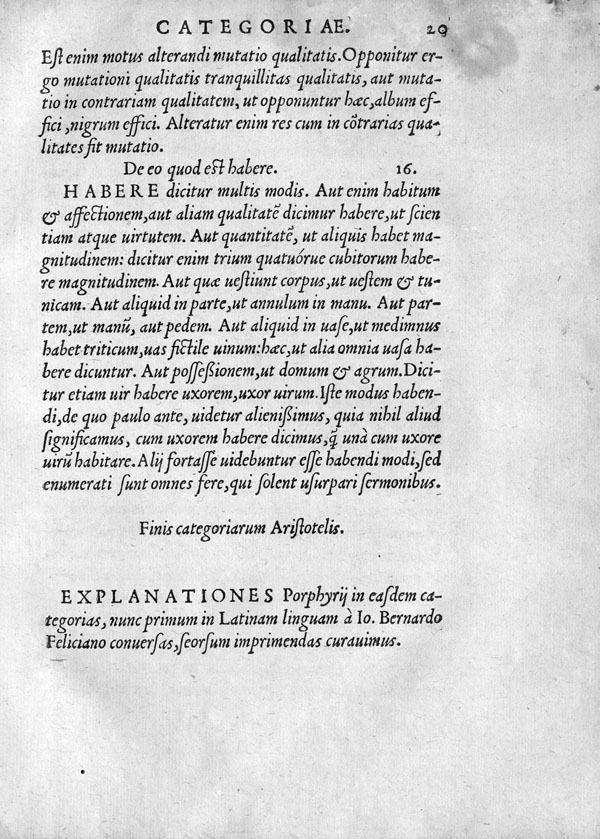 CATEGORIAE. 29
Est enim motus alterandi mutatio qualitatis. Opponitur er-
go mutationi qualitatis tranquillitas qualitatis, aut muta-
tio in contrariam qualitatem, ut opponuntur hæc, album ef-
fici, nigrum effici. Alteratur enim res cum in cõtrarias qua-
litates fit mutatio.
De eo quod est habere. 16.
HABERE dicitur multis modis. Aut enim habitum
& affectionem, aut aliam qualitatẽ dicimur habere, ut scien
tiam atque uirtutem. Aut quantitatẽ, ut aliquis habet ma-
gnitudinem: dicitur enim trium quatuórue cubitorum habe-
re magnitudinem. Aut quæ uestiunt corpus, ut uestem & tu-
nicam. Aut aliquid in parte, ut annulum in manu. Aut par-
tem, ut manũ, aut pedem. Aut aliquid in uase, ut medimnus
habet triticum, uas fictile uinum: hæc, ut alia omnia uasa ha-
bere dicuntur. Aut posseßionem, ut domum & agrum. Dici-
tur etiam uir habere uxorem, uxor uirum. Iste modus haben-
di, de quo paulo ante, uidetur alienißimus, quia nihil aliud
significamus, cum uxorem habere dicimus, q̃ unà cum uxore
uirũ habitare. Alij fortasse uidebuntur esse habendi modi, sed
enumerati sunt omnes fere, qui solent usurpari sermonibus.
Finis categoriarum Aristotelis.
EXPLANATIONES Porphyrij in easdem ca-
tegorias, nunc primum in Latinam linguam à Io. Bernardo
Feliciano conuersas, seorsum imprimendas curauimus.